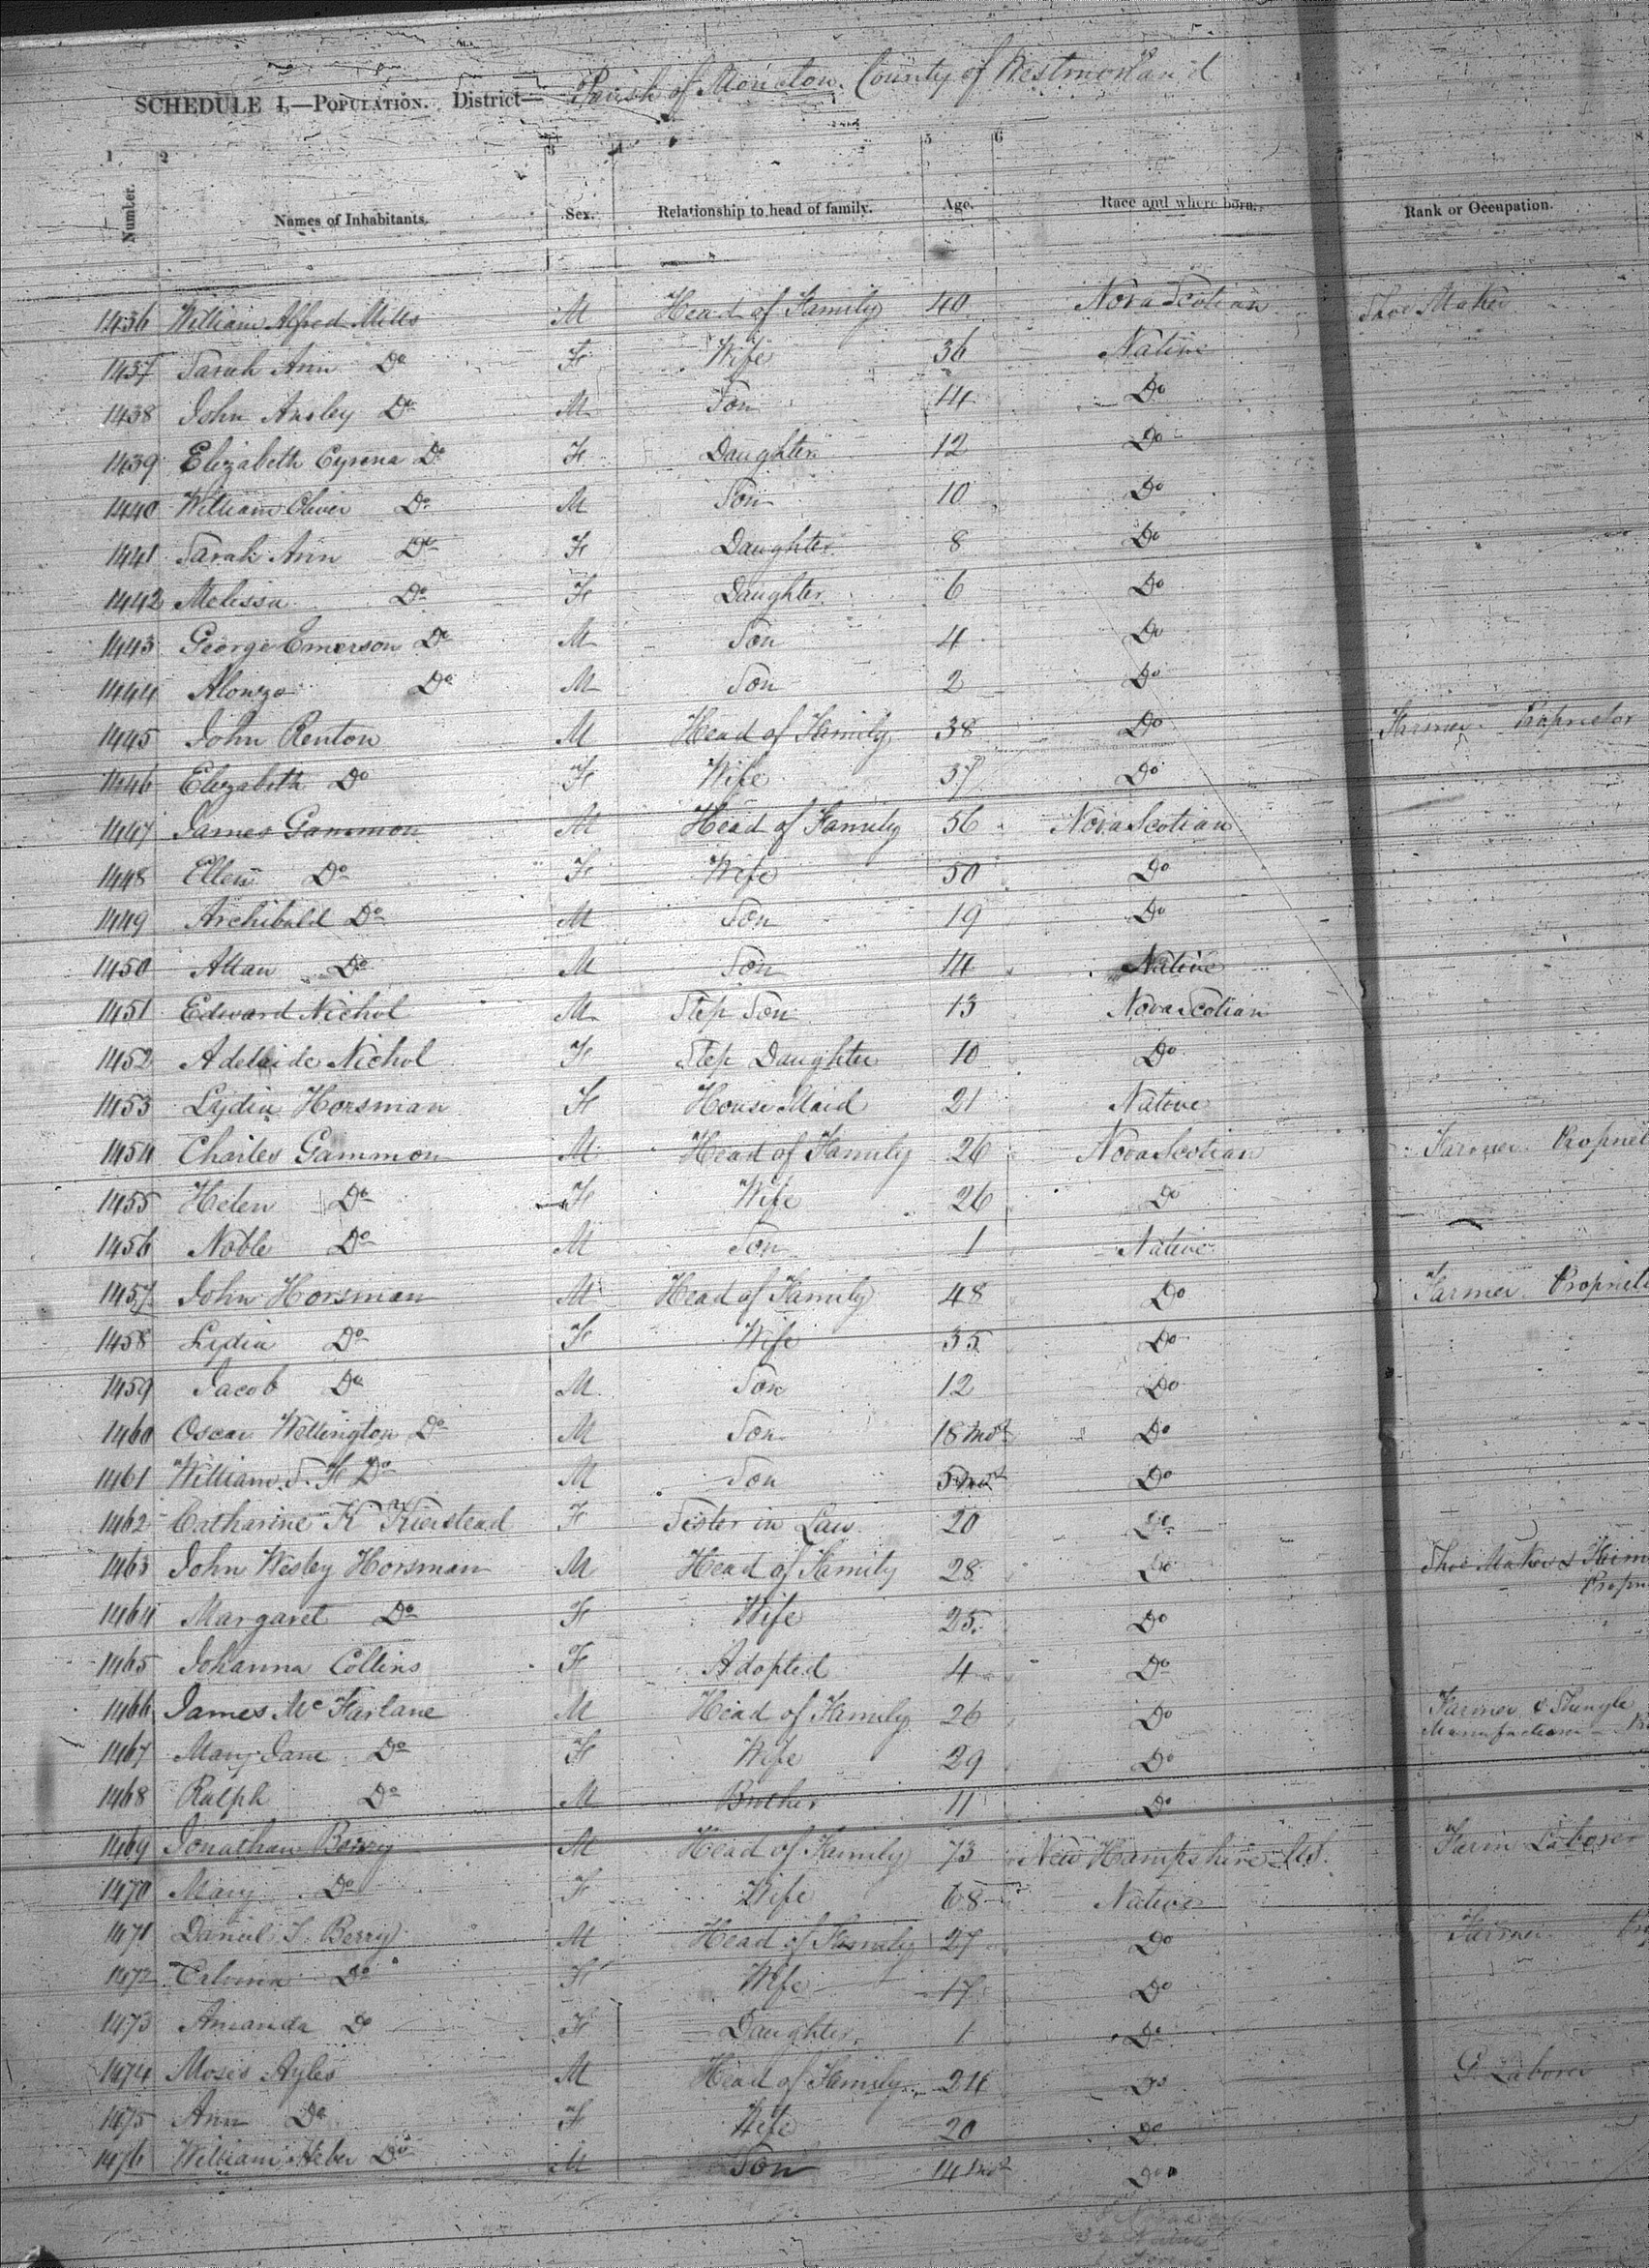 SCHEDULE I,—POPULATION. District— Parish of Moncton. County of Westmorland
1 2 3 4 5 6 8
Number. Names of Inhabitants. Sex. Relationship to head of family. Age. Race and where born. Rank or Occupation.
1436 William Alfred Mills M Head of Family 40 Nova Scotian Shoe Maker
1437 Sarah Ann Do F Wife 36 Native
1438 John Ansley Do M Son 14 Do
1439 Elizabeth Cyrena Do F Daughter 12 Do
1440 William Oliver Do M Son 10 Do
1441 Sarah Ann Do F Daughter 8 Do
1442 Melissa Do F Daughter 6 Do
1443 George Emerson Do M Son 4 Do
1444 Alonzo Do M Son 2 Do
1445 John Renton M Head of Family 38 Do Farmer Proprietor
1446 Elizabeth Do F Wife 37 Do
1447 James Gammon M Head of Family 56 Nova Scotian
1448 Ellen Do F Wife 50 Do
1449 Archibald Do M Son 19 Do
1450 Allan Do M Son 14 Native
1451 Edward Nichol M Step Son 13 Nova Scotian
1452 Adelaide Nichol F Step Daughter 10 Do
1453 Lydia Horsman F House Maid 21 Native
1454 Charles Gammon M Head of Family 26 Nova Scotian Farmer Propriet
1455 Helen Do F Wife 26 Do
1456 Noble Do M Son 1 Native
1457 John Horsman M Head of Family 48 Do Farmer Propriet
1458 Lydia Do F Wife 35 Do
1459 Jacob Do M Son 12 Do
1460 Oscar Wellington Do M Son 18 mos Do
1461 William S. F Do M Son 5 mos Do
1462 Catharine K Kierstead F Sister in Law 20 Do
1463 John Wesley Horsman M Head of Family 28 Do Shoe Maker & Farm
Propri
1464 Margaret Do F Wife 25 Do
1465 Johanna Collins F Adopted 4 Do
1466 James McFarlane M Head of Family 26 Do Farmer & Shingle
Manufacturer
1467 Mary Jane Do F Wife 29 Do
1468 Ralph Do M Brother 11 Do
1469 Jonathan Berry M Head of Family 73 New Hampshire U.S. Farm Laborer
1470 Mary Do F Wife 68 Native
1471 Daniel S. Berry M Head of Family 27 Do Farmer
1472 Do F Wife 17 Do
1473 Amanda Do F Daughter 1 Do
1474 Moses Ayles M Head of Family 24 Do G. Laborer
1475 Ann Do F Wife 20 Do
1476 William Heber Do M Son 14 mos Do